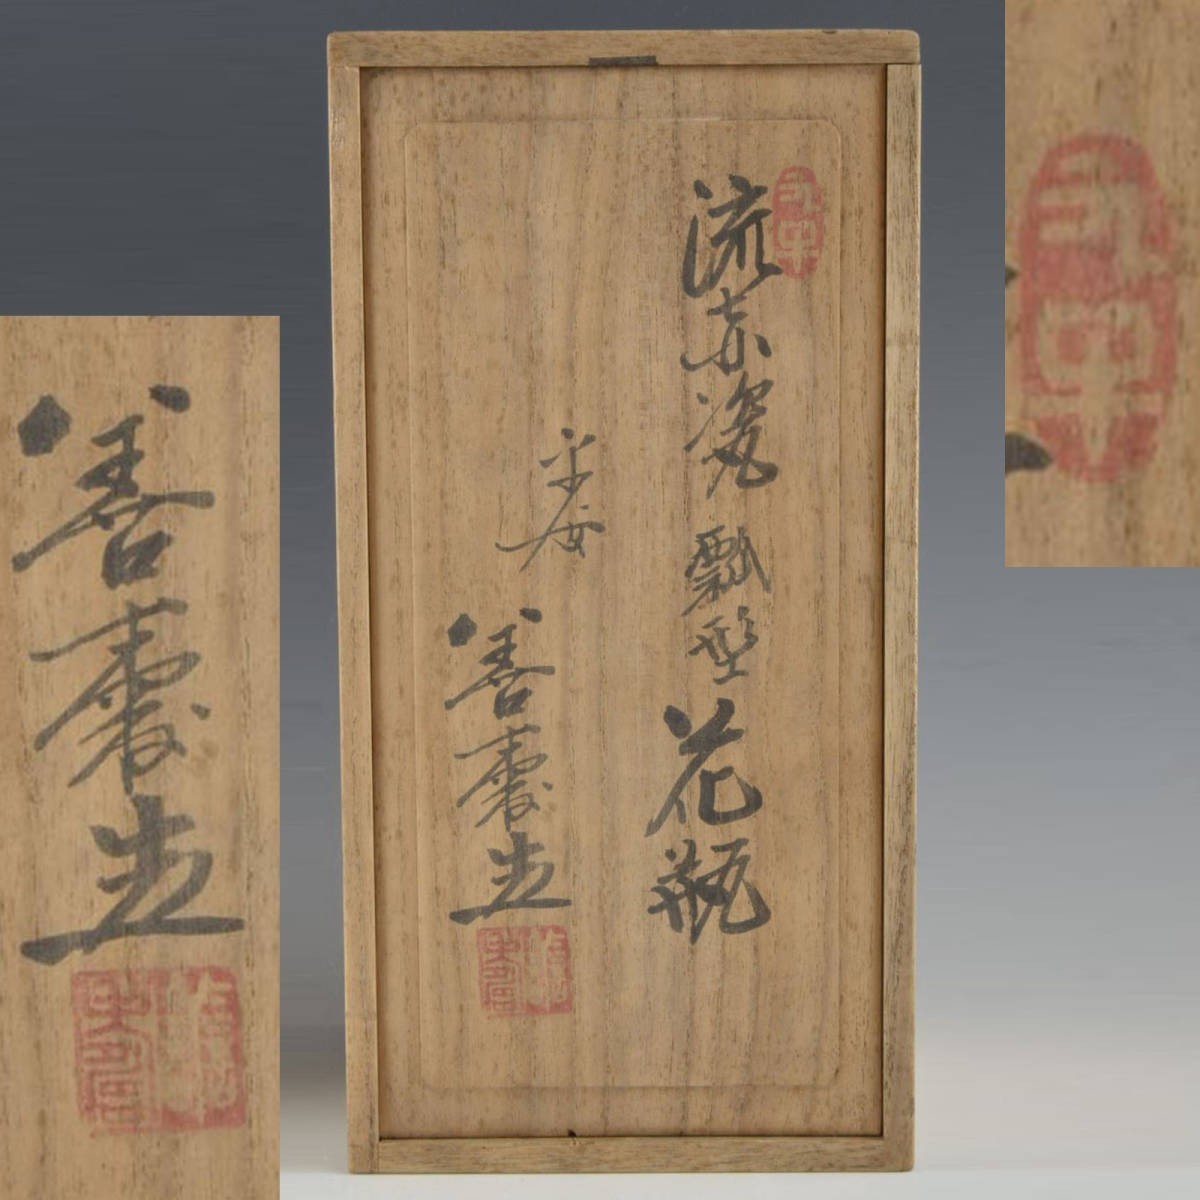 流赤瓷 瓢型 花瓶
平安
善壽造
善壽造